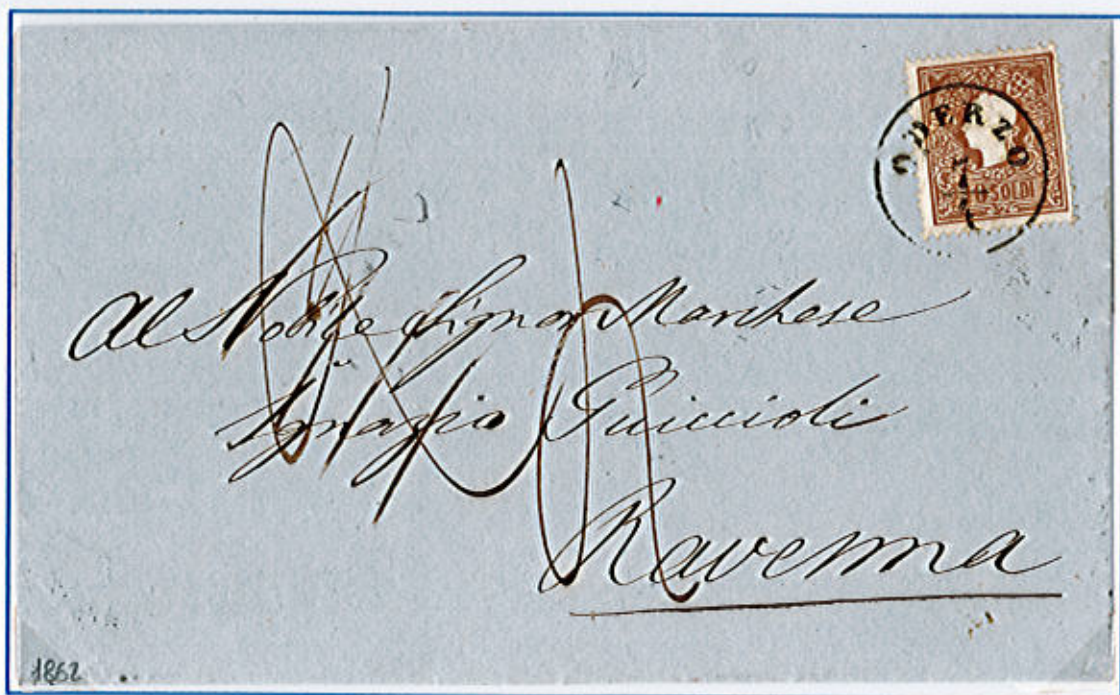 ODERZO
7
10 SOLDI
Al Nobile Signor Marchese
Ignazio Guiccioli
Ravenna
1862